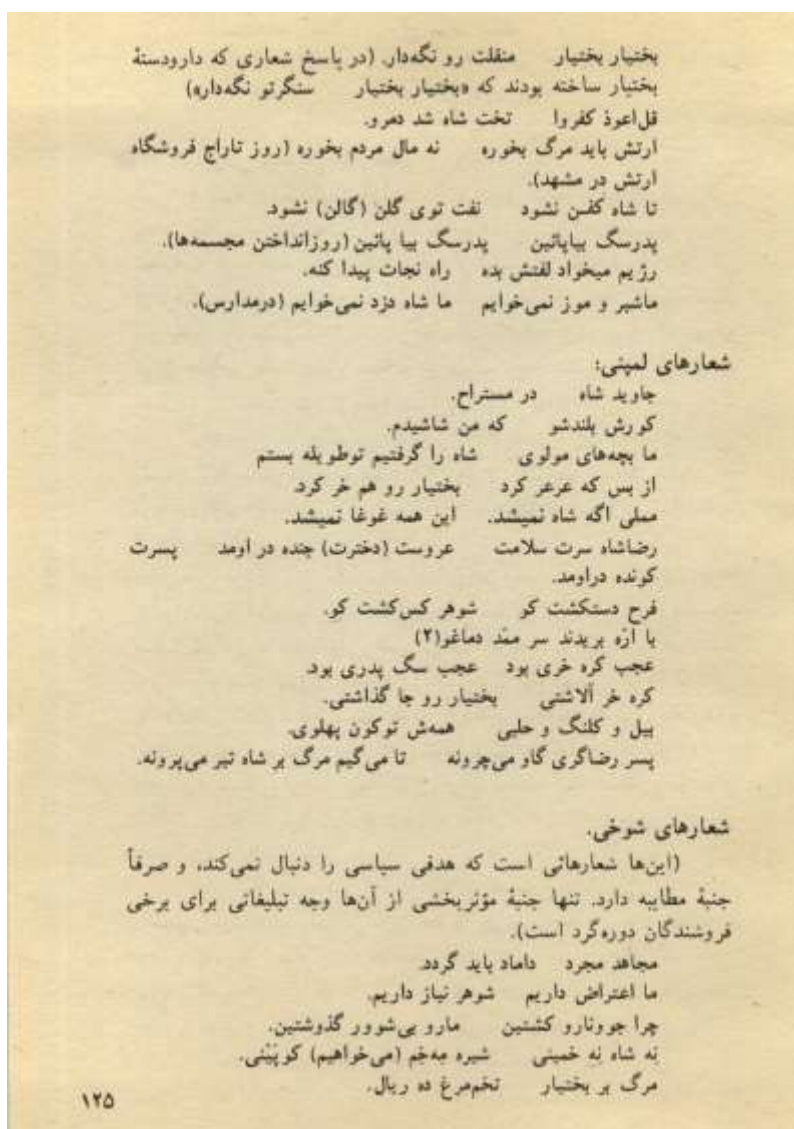 بختیار بختیار منقلت رو نگه‌دار. (در پاسخ شعاری که دارودستهٔ
بختیار ساخته بودند که «بختیار بختیار سنگرتو نگه‌دار»)
قل‌اعوذ کفروا تخت شاه شد دمرو.
ارتش باید مرگ بخوره نه مال مردم بخوره (روز تاراج فروشگاه
ارتش در مشهد).
تا شاه کفن نشود نفت توی گلن (گالن) نشود.
پدرسگ بیاپائین پدرسگ بیا پائین (روزانداختن مجسمه‌ها).
رژیم میخواد لفتش بده راه نجات پیدا کنه.
ماشیر و موز نمی‌خوایم ما شاه دزد نمی‌خوایم (درمدارس).
شعارهای لمپنی:
جاوید شاه در مستراح.
کورش بلندشو که من شاشیدم.
ما بچه‌های مولوی شاه را گرفتیم توطویله بستم
از بس که عرعر کرد بختیار رو هم خر کرد.
مملی اگه شاه نمیشد. این همه غوغا نمیشد.
رضاشاه سرت سلامت عروست (دخترت) جنده در اومد پسرت
کونده دراومد.
فرح دستکشت کو شوهر کس‌کشت کو.
با ارّه بریدند سر ممّد دماغو(۲)
عجب کره خری بود عجب سگ پدری بود.
کره خر آلاشتی بختیار رو جا گذاشتی.
بیل و کلنگ و حلبی همه‌ش توکون پهلوی.
پسر رضاگری گاو می‌چرونه تا می‌گیم مرگ بر شاه تیر می‌پرونه.
شعارهای شوخی.
(این‌ها شعارهائی است که هدفی سیاسی را دنبال نمی‌کند، و صرفاً
جنبهٔ مطایبه دارد. تنها جنبهٔ مؤثربخشی از آن‌ها وجه تبلیغاتی برای برخی
فروشندگان دوره‌گرد است).
مجاهد مجرد داماد باید گردد.
ما اعتراض داریم شوهر نیاز داریم.
چرا جوونارو کشتین مارو بی‌شوور گذوشتین.
نه شاه نه خمینی شیره مه‌خِم (می‌خواهیم) کوپَنْنی.
مرگ بر بختیار تخم‌مرغ ده ریال.
۱۲۵